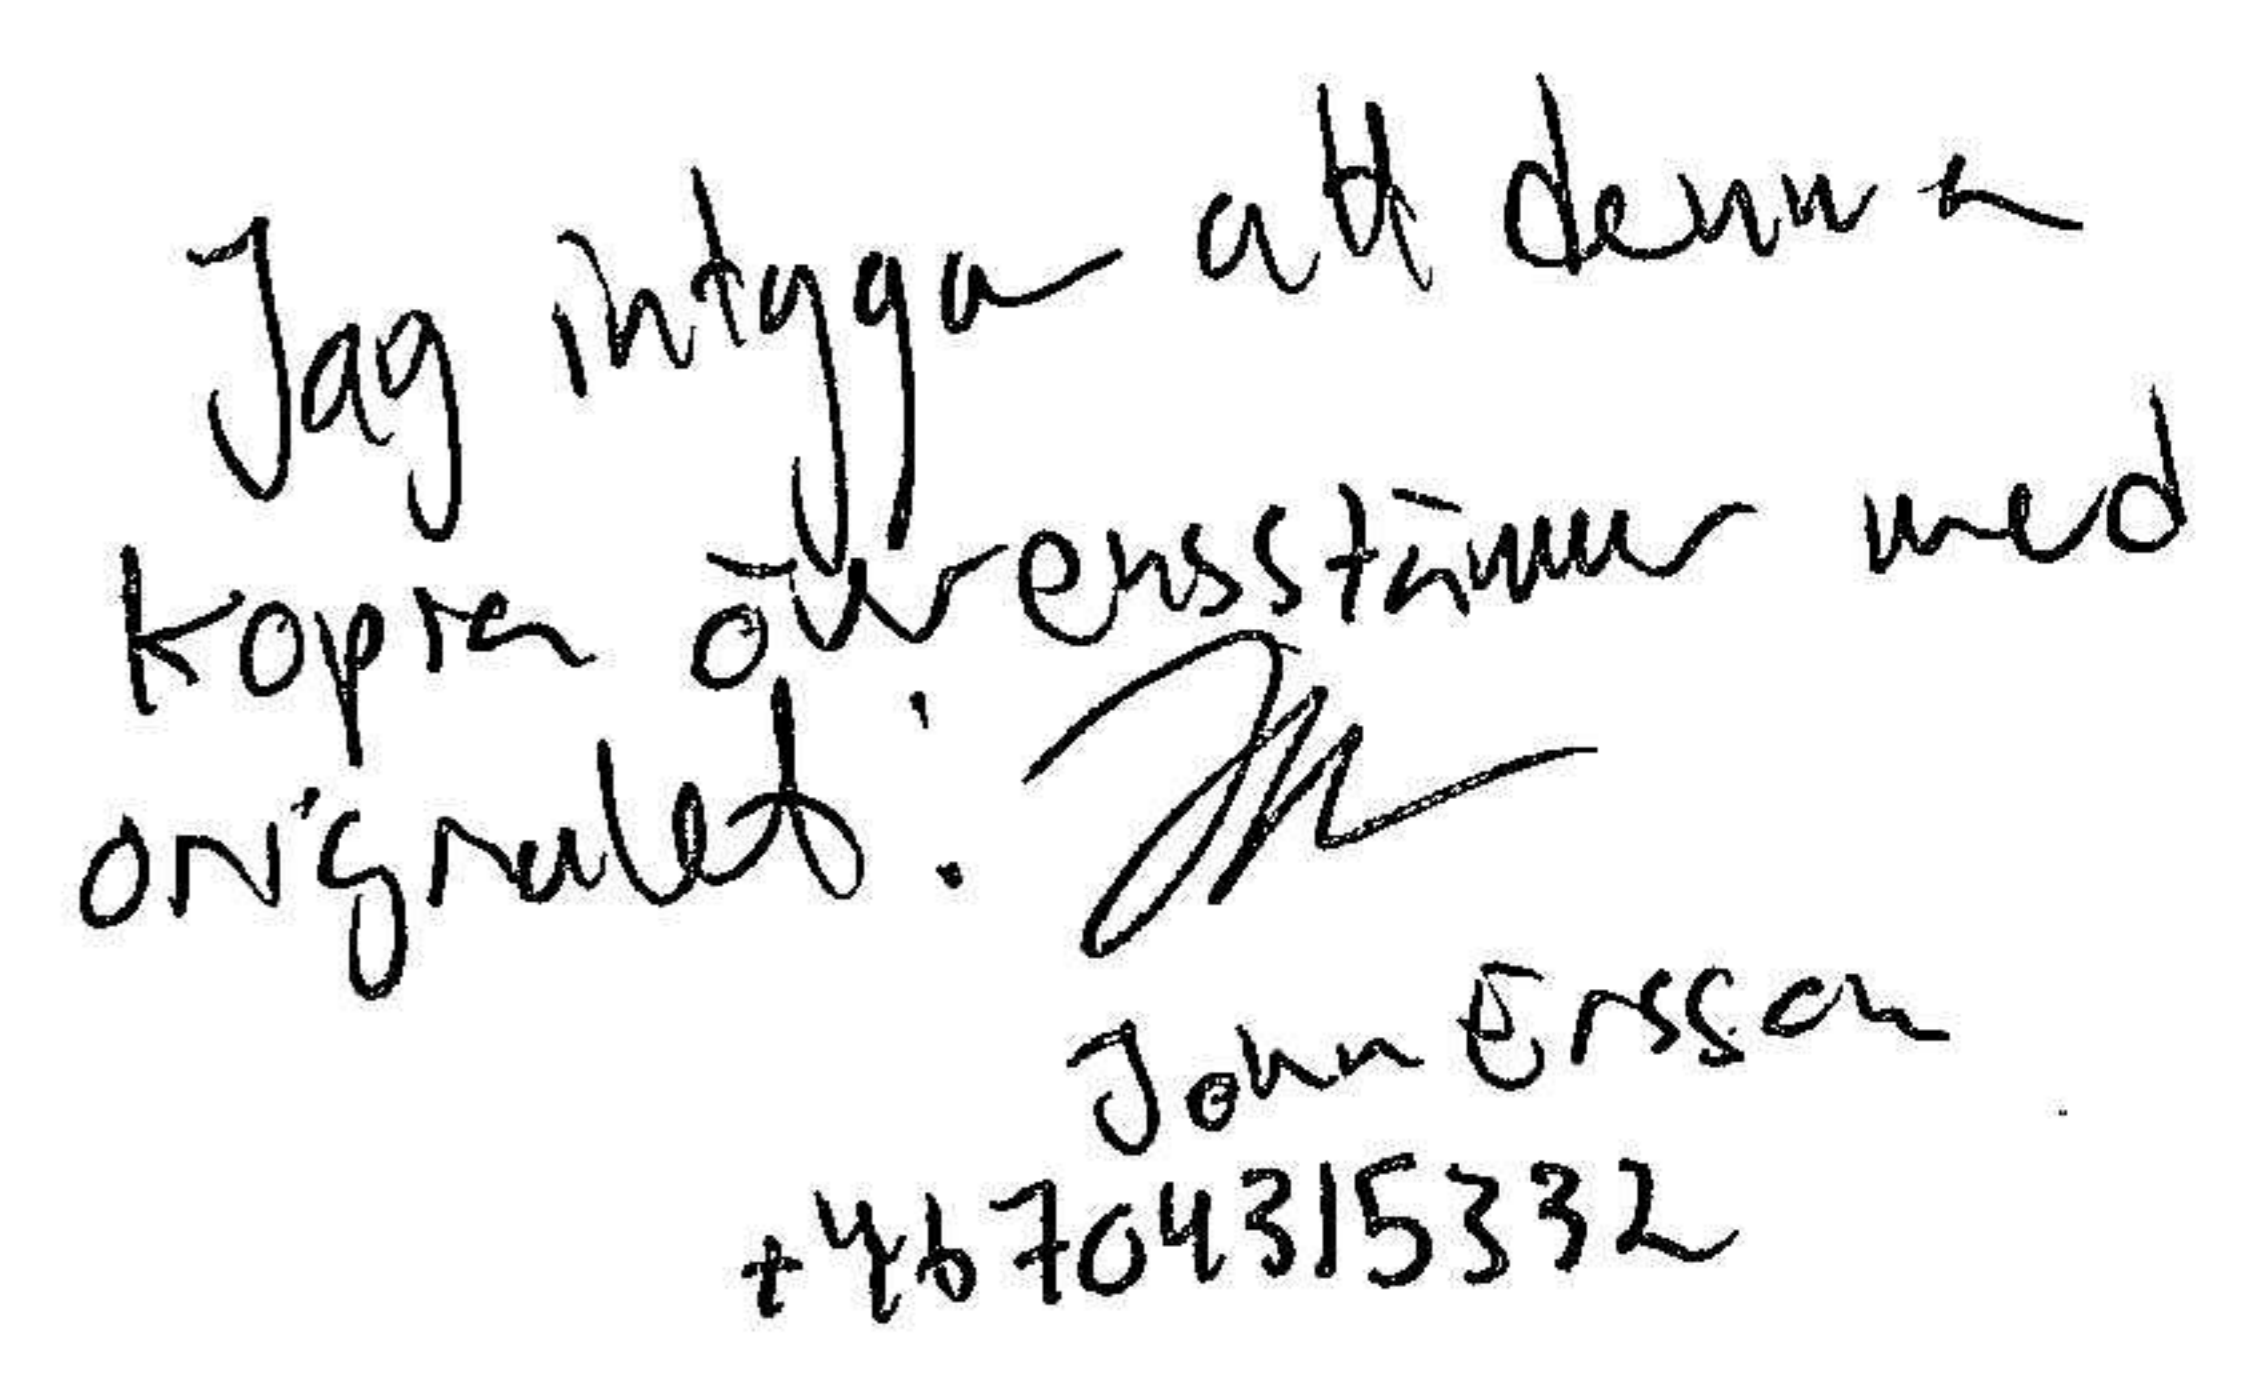 Jag intygar att denna
kopia överensstämmer med
originalet:
John Ersson
+46704315332